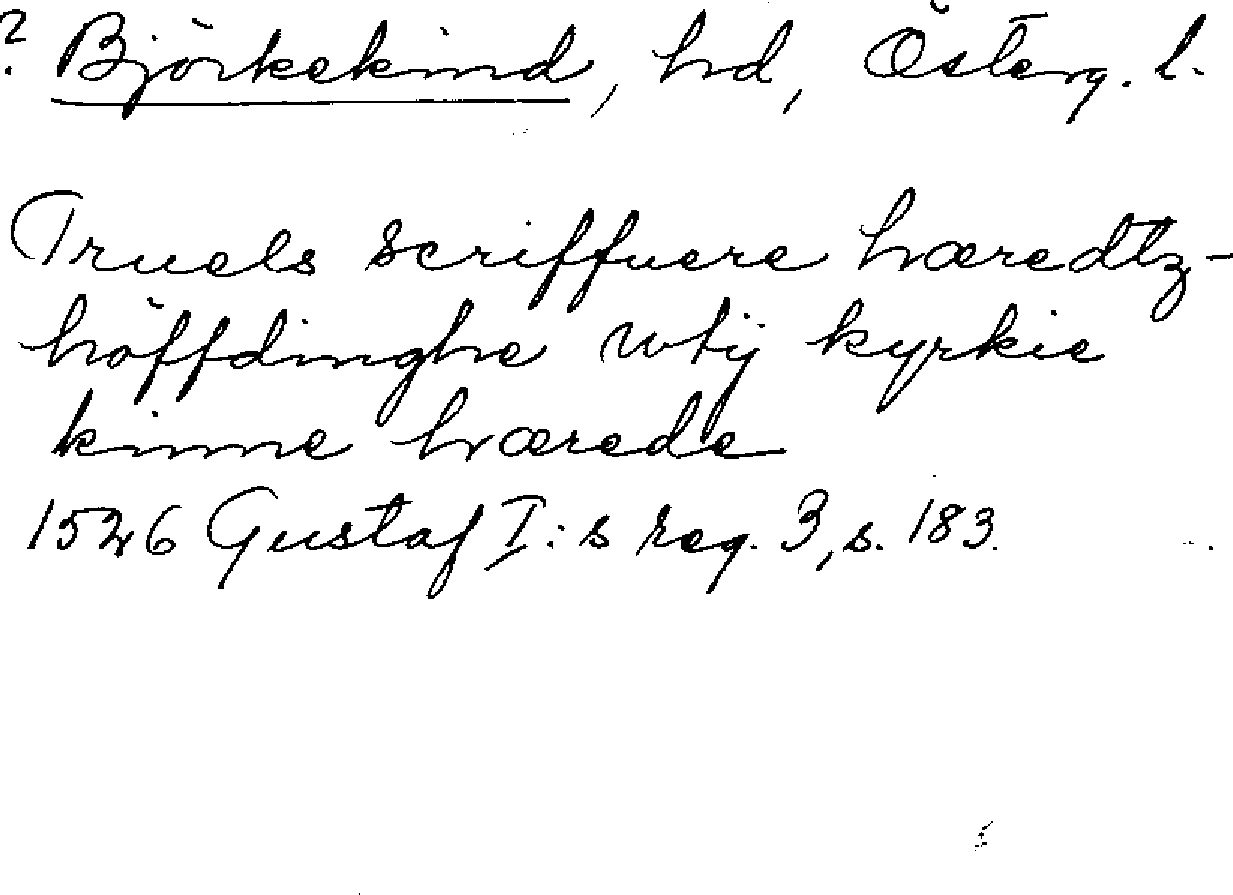 ? Björkekind, hd, Österg. l.
Truels scriffuere hæredtz-
höffdinghe wtij kyrkie
kinne hærede
1526 Gustaf I:s reg. 3, s. 183.